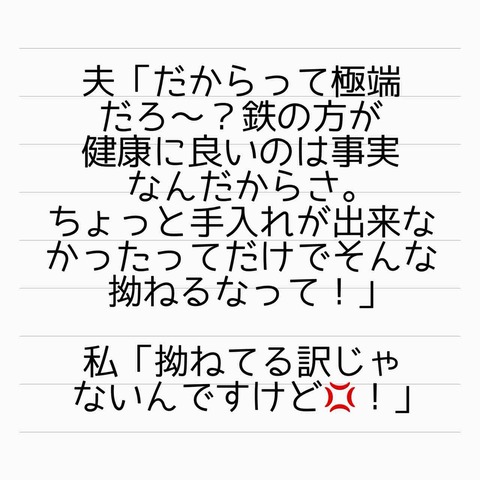 夫「だからって極端
だろ〜？鉄の方が
健康に良いのは事実
なんだからさ。
ちょっと手入れが出来な
かったってだけでそんな
拗ねるなって！」
私「拗ねてる訳じゃ
ないんですけど💢！」